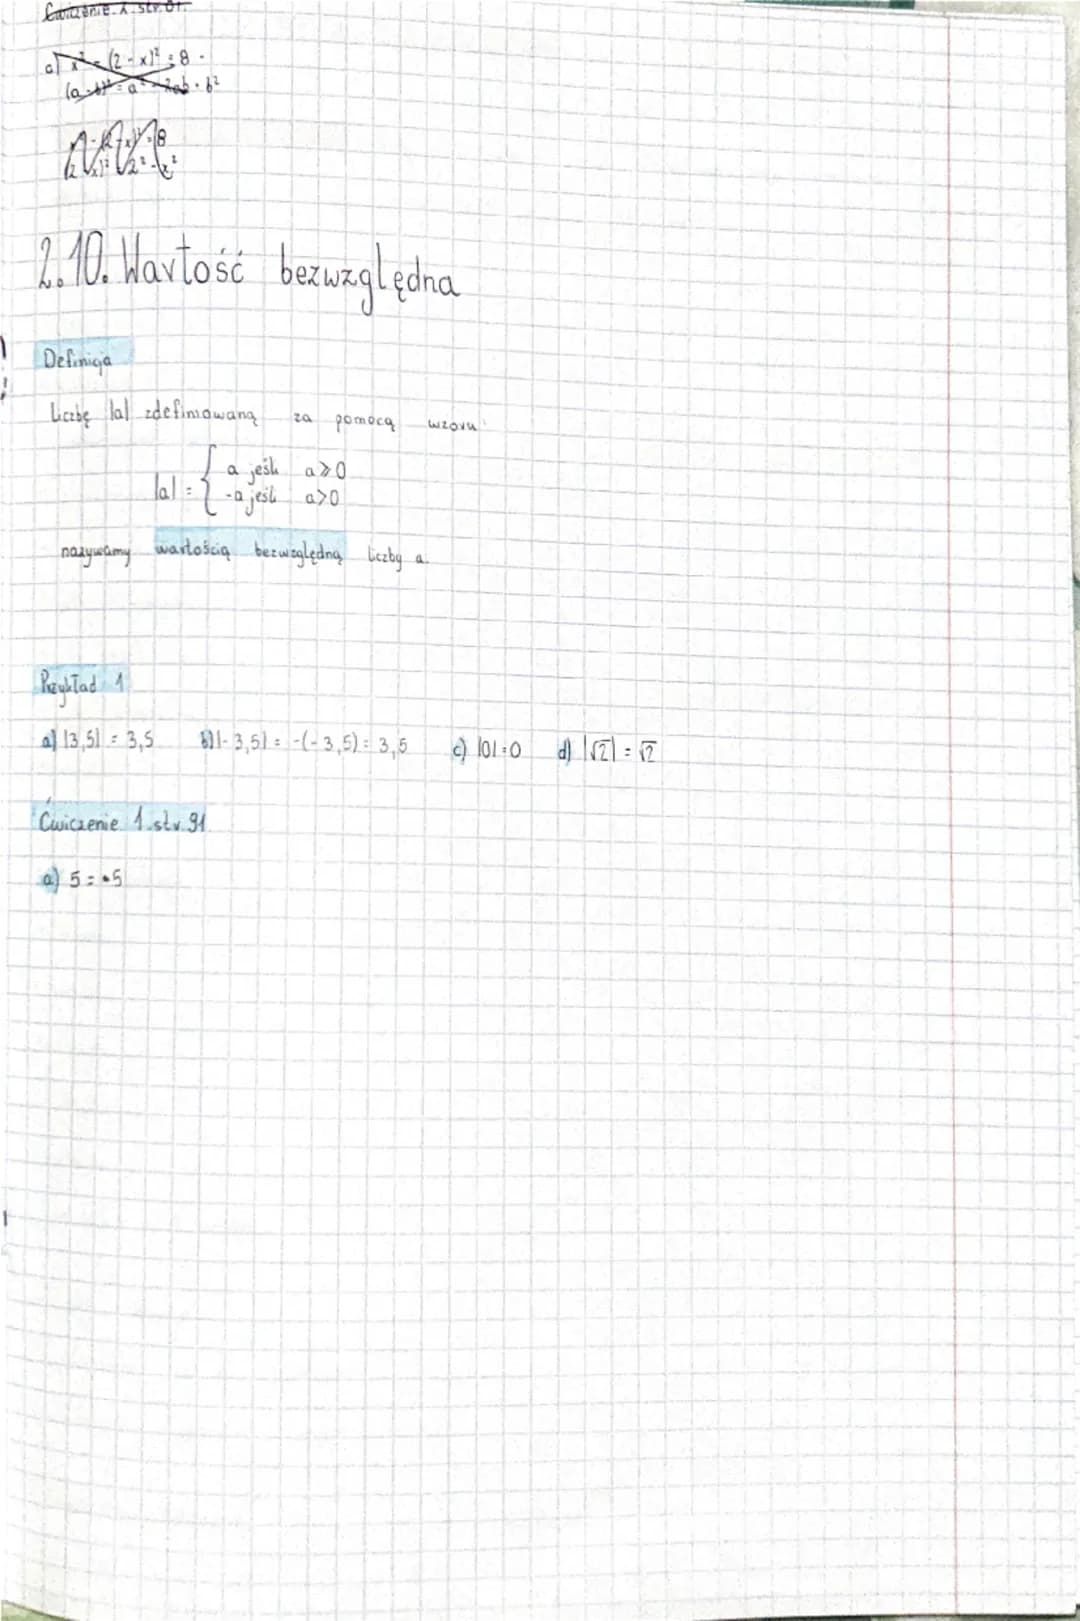 Ćwiczenie. 1. str. 81.
a) x² - (2 - x)² = 8
(a - b)² = a² - 2ab + b²
2.10. Wartość bezwzględna
Definicja
Liczbę |a| zdefiniowaną za pomocą wzoru
|a| = { a jeśli a ≥ 0
-a jeśli a > 0
nazywamy wartością bezwzględną liczby a.
Przykład 1
a) |3,5| = 3,5 b) |-3,5| = -(-3,5) = 3,5 c) |0| = 0 d) |√2| = √2
Ćwiczenie 1. str. 91
a) 5 = 5